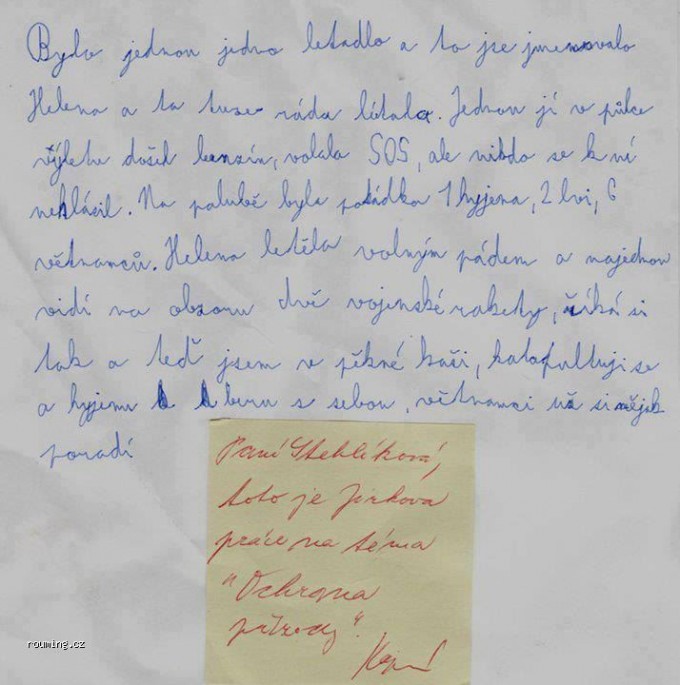 Bylo jednou jedno letadlo a to jse jmenovalo
Helena a ta tuze ráda létala. Jednou jí v půlce
výletu došel benzín, volala SOS, ale nikdo se k ní
nehlásil. Na palubě byla posádka 1 hyjena, 2 lvi, 6
větnamců. Helena letěla volným pádem a najednou
vidí na obzoru dvě vojenské rakety, říká si
tak a teď jsem v pěkné kaši, katapultuji se
a hyjenu beru s sebou, větnamci už si nějak
poradí
Paní Stehlíková,
toto je Jirkova
práce na téma
"Ochrana
přírody".
rouming.cz